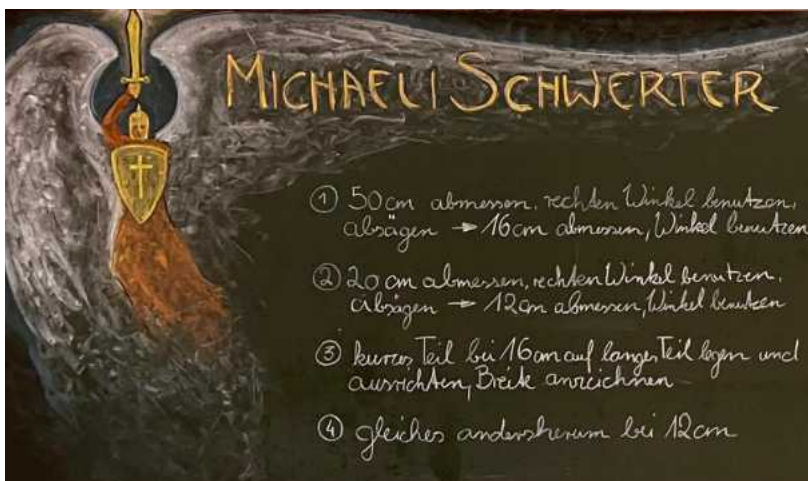 MICHAELI SCHWERTER
① 50cm abmessen, rechten Winkel benutzen,
absägen → 16cm abmessen, Winkel benutzen
② 20cm abmessen, rechten Winkel benutzen,
absägen → 12cm abmessen, Winkel benutzen
③ kurzes Teil bei 16cm auf langes Teil legen und
ausrichten, Breite anzeichnen
④ gleiches andersherum bei 12cm